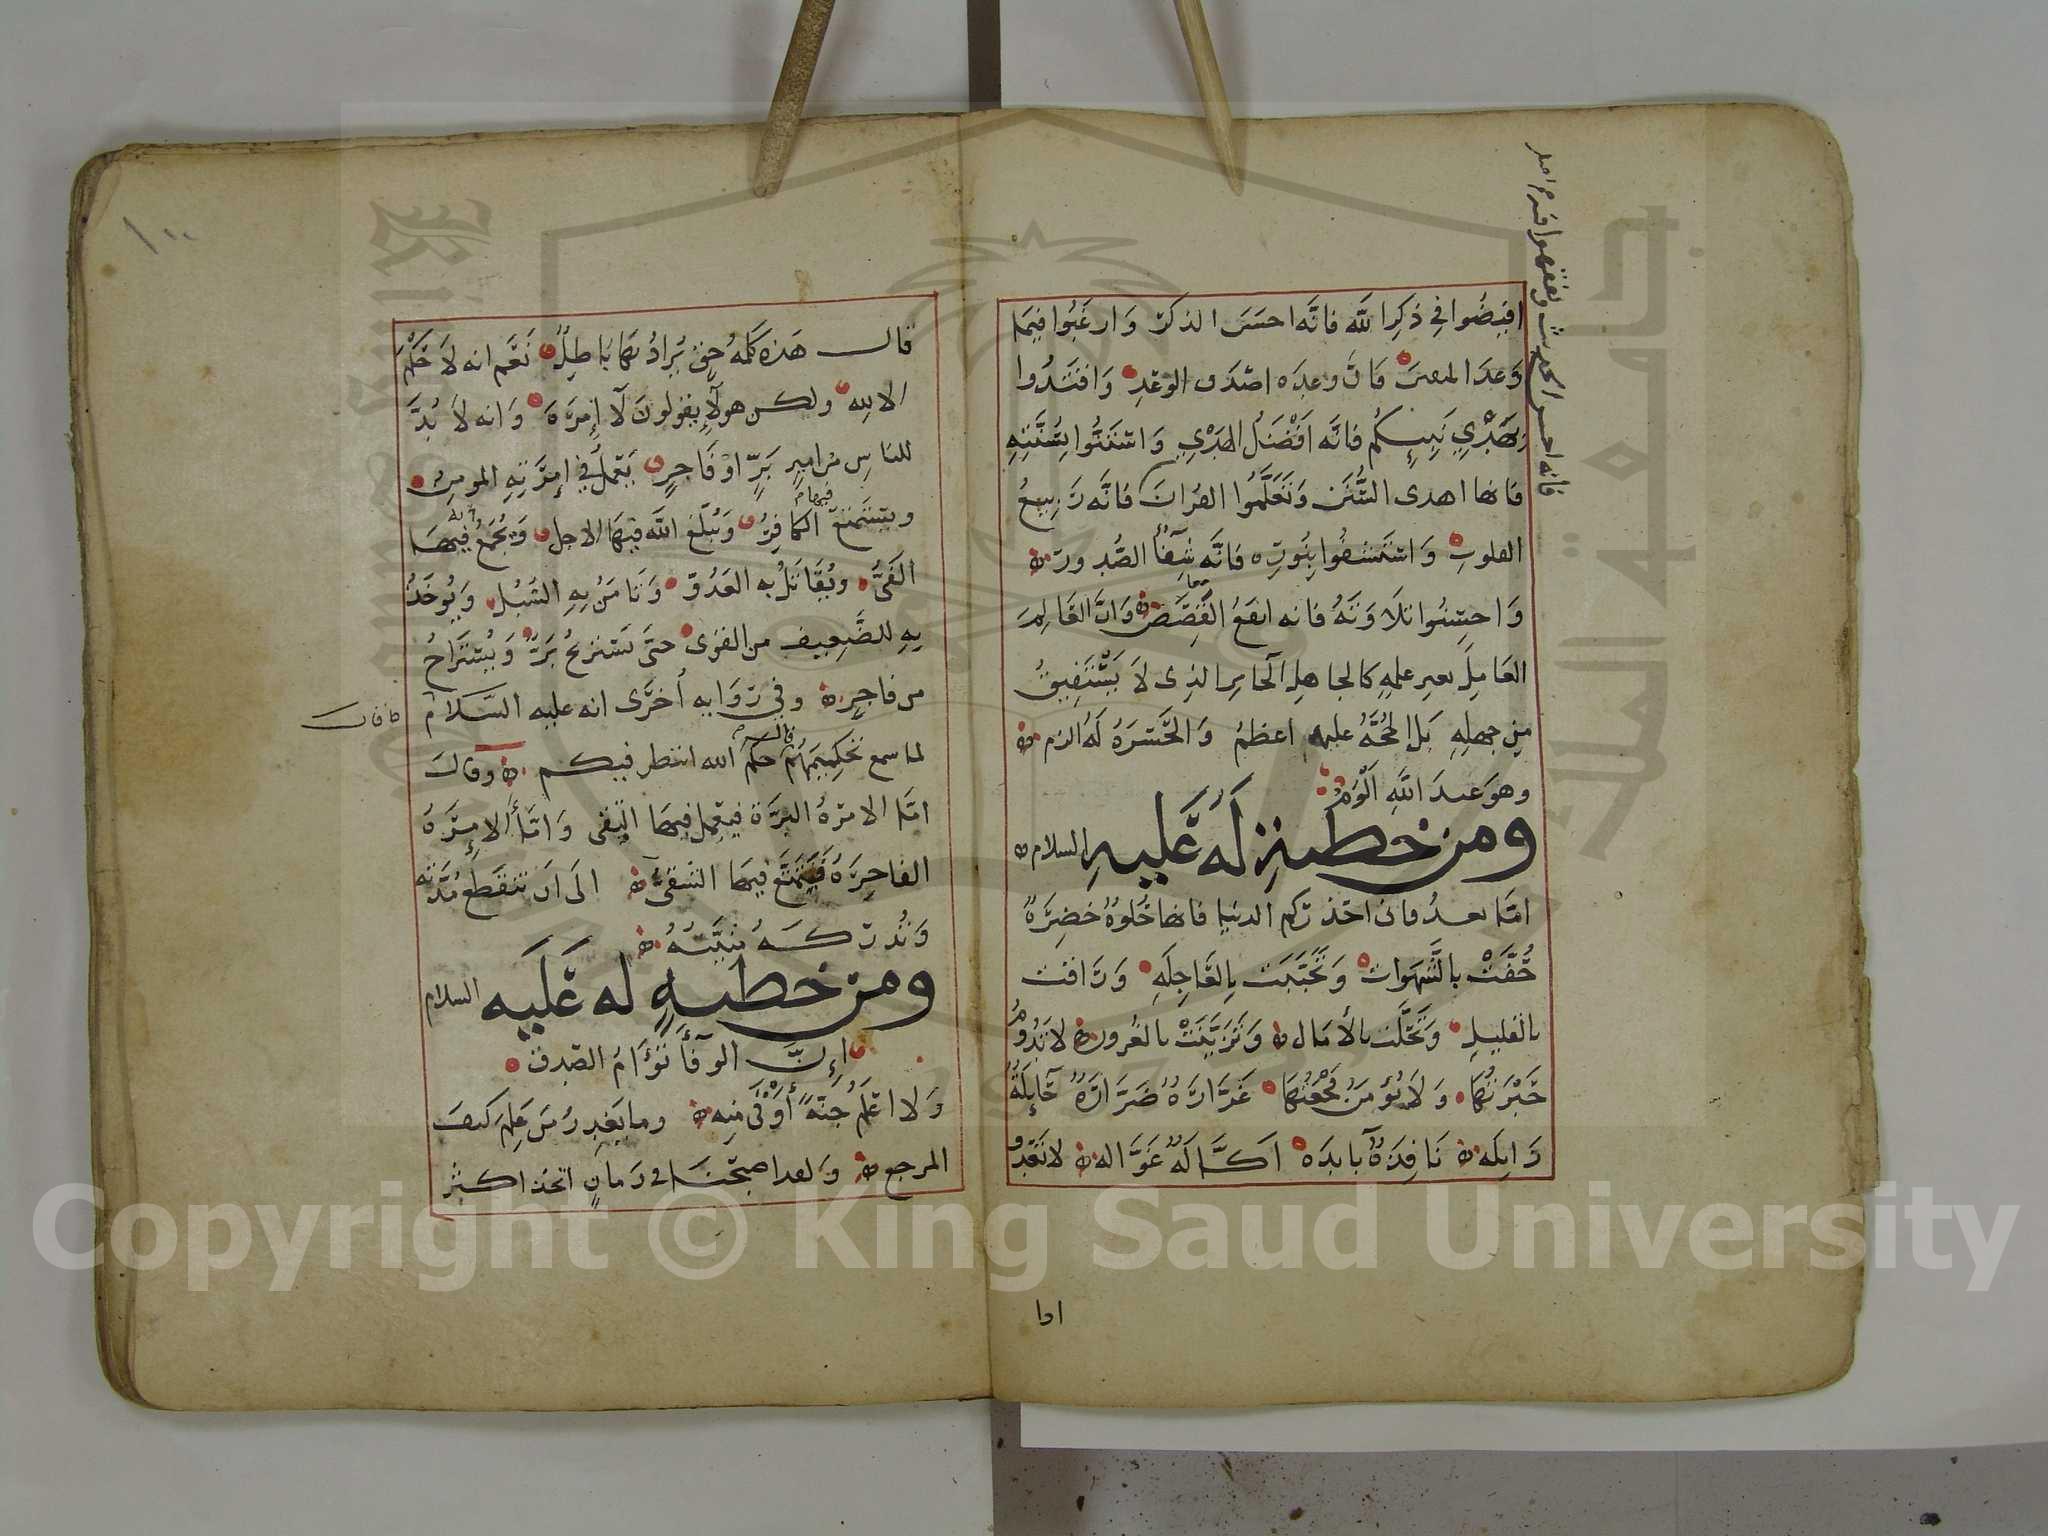 افيضوا في ذكر الله فانه احسن الذكر وارغبوا فيما
وعد المتقين فان وعده اصدق الوعد واقتدوا
بهدي نبيكم فانه افضل الهدي واستنوا بسنته
فانها اهدى السنن وتعلموا القران فانه ربيع
القلوب واستشفوا بنوره فانه شفآء الصدور
واحسنوا تلاوته فانه انفع القصص وان العالم
العامل بغير علمه كالجاهل الحاير الذي لا يستفيق
من جهله بل الحجة عليه اعظم والحسرة له الزم
وهو عند الله الوم
ومن خطبة له عليه السلام
اما بعد فاني احذركم الدنيا فانها حلوة خضرة
حفت بالشهوات وتحببت بالعاجلة وراقت
بالقليل وتحلت بالأمال وتزينت بالغرور لا تدوم
حبرتها ولا تؤمن فجعتها غرارة ضرارة حايلة
زايله نافدة بايده اكالة غواله لا تعدو
اذا
وتفقهوا فيه
فانه احسن الحديث
١٠٠
قال هذه كلمة حق يراد بها باطل نعم انه لا حكم
الا لله ولكن هولآء يقولون لا إمرة وانه لا بد
للناس من امير بر او فاجر يعمل في إمرته المومن
ويستمتع فيها الكافر ويبلغ الله فيها الاجل ويجمع به
الفيء ويقاتل به العدو وتامن به السبل ويوخذ
به للضعيف من القوى حتى يستريح بر ويستراح
من فاجر وفي روايه أخرى انه عليه السلام
لما سمع تحكيمهم قال حكم الله انتظر فيكم وقال
اما الامرة البرة فيعمل فيها التقى واما الإمرة
الفاجرة فيتمتع فيها الشقي الى ان تنقطع مدته
وتدركه منيته
ومن خطبة له عليه السلام
إن الوفآء توأم الصدق
ولا اعلم جنة أوقى منه وما يغدر من علم كيف
المرجع ولقد اصبحنا في زمان اتخذ اكثر